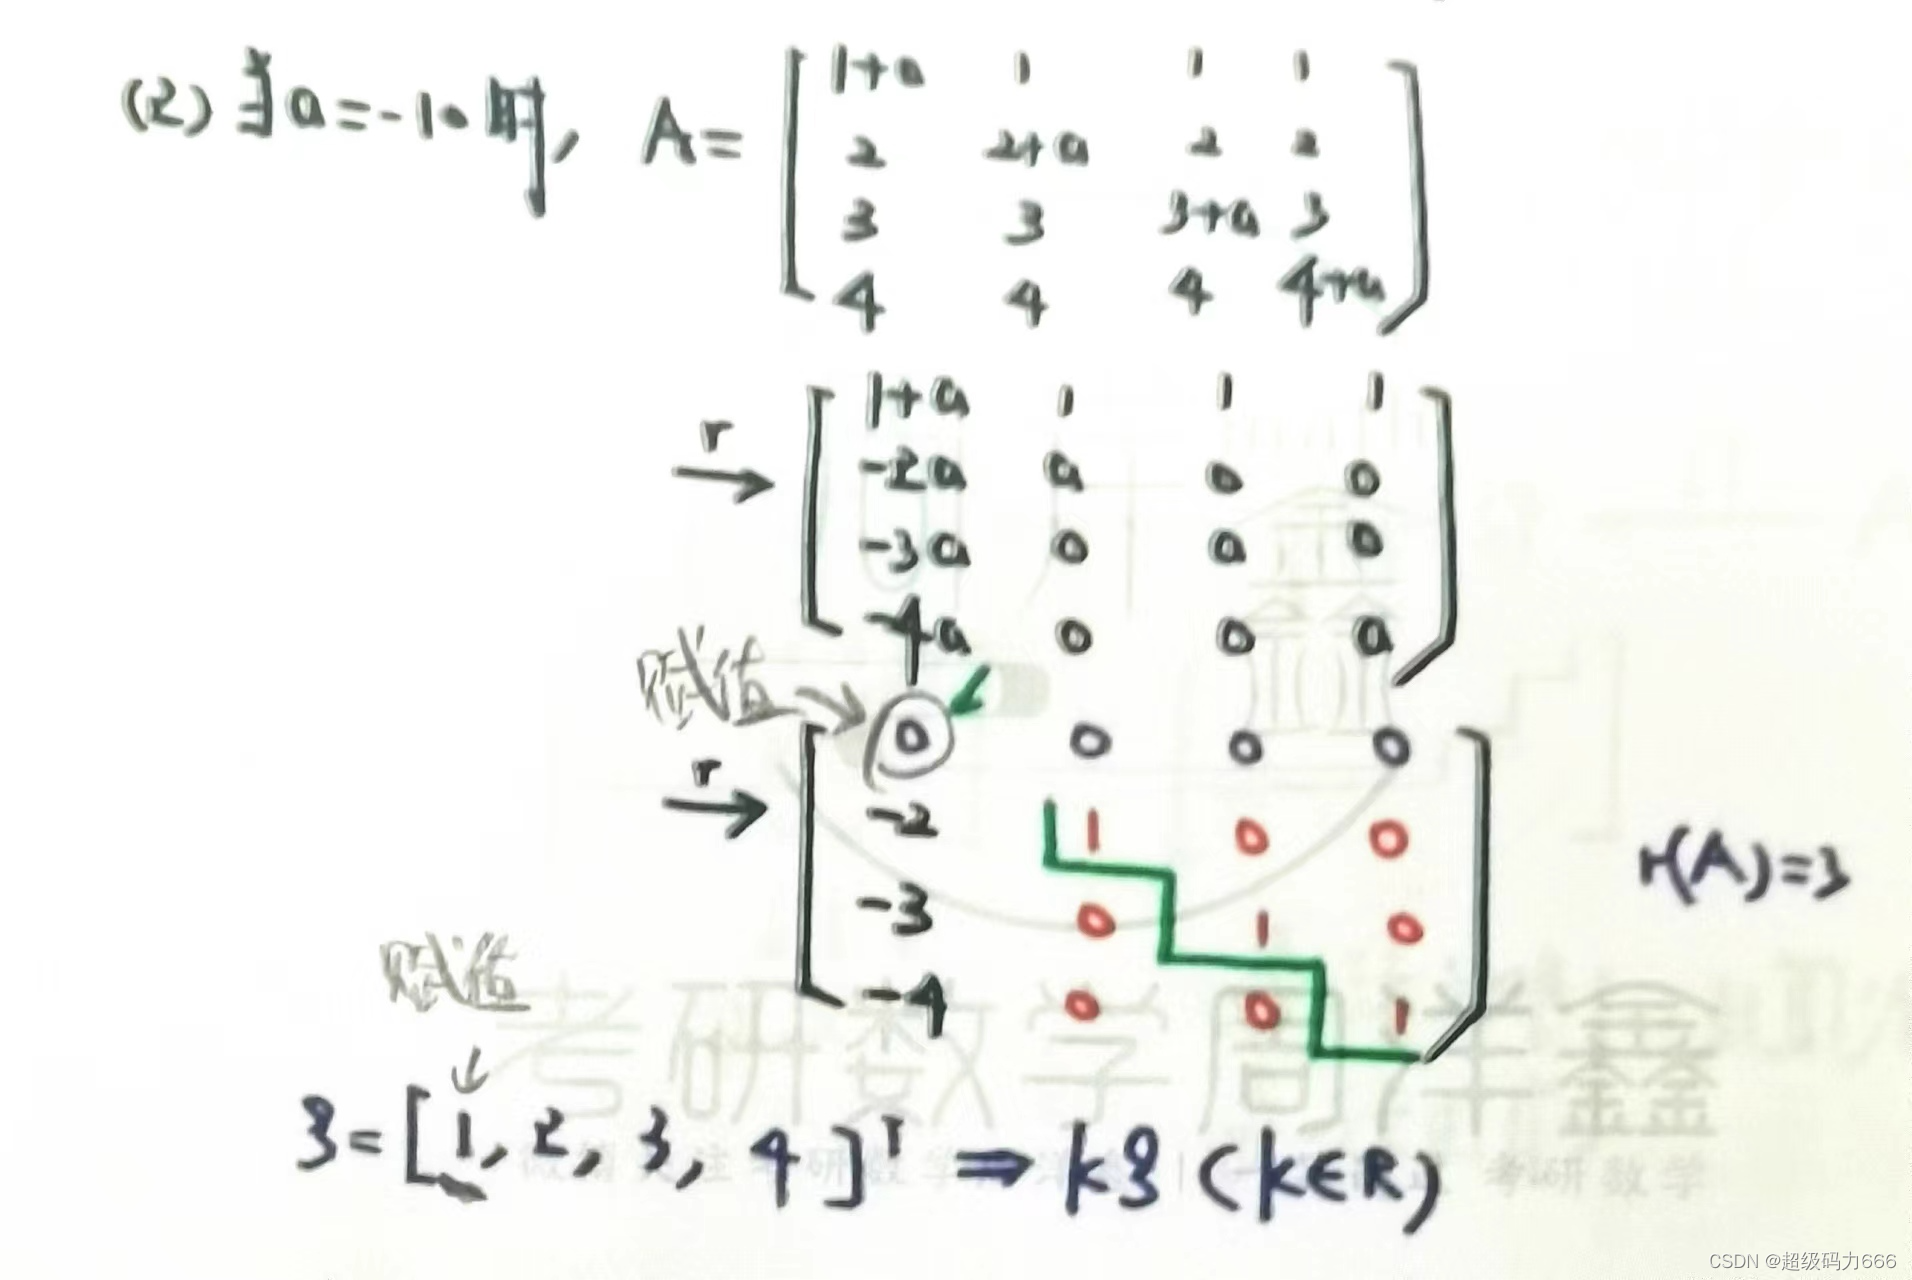 (2) 当a=-10时, A= [ 1+a 1 1 1
2 2+a 2 2
3 3 3+a 3
4 4 4 4+a ]
r→ [ 1+a 1 1 1
-2a a 0 0
-3a 0 a 0
-4a 0 0 a ]
赋值
r→ [ 0 0 0 0
-2 1 0 0
-3 0 1 0
-4 0 0 1 ]
r(A)=3
赋值
ξ=[1, 2, 3, 4]ᵀ ⇒ kξ (k∈R)
考研数学周洋鑫
考研数学
CSDN @超级码力666